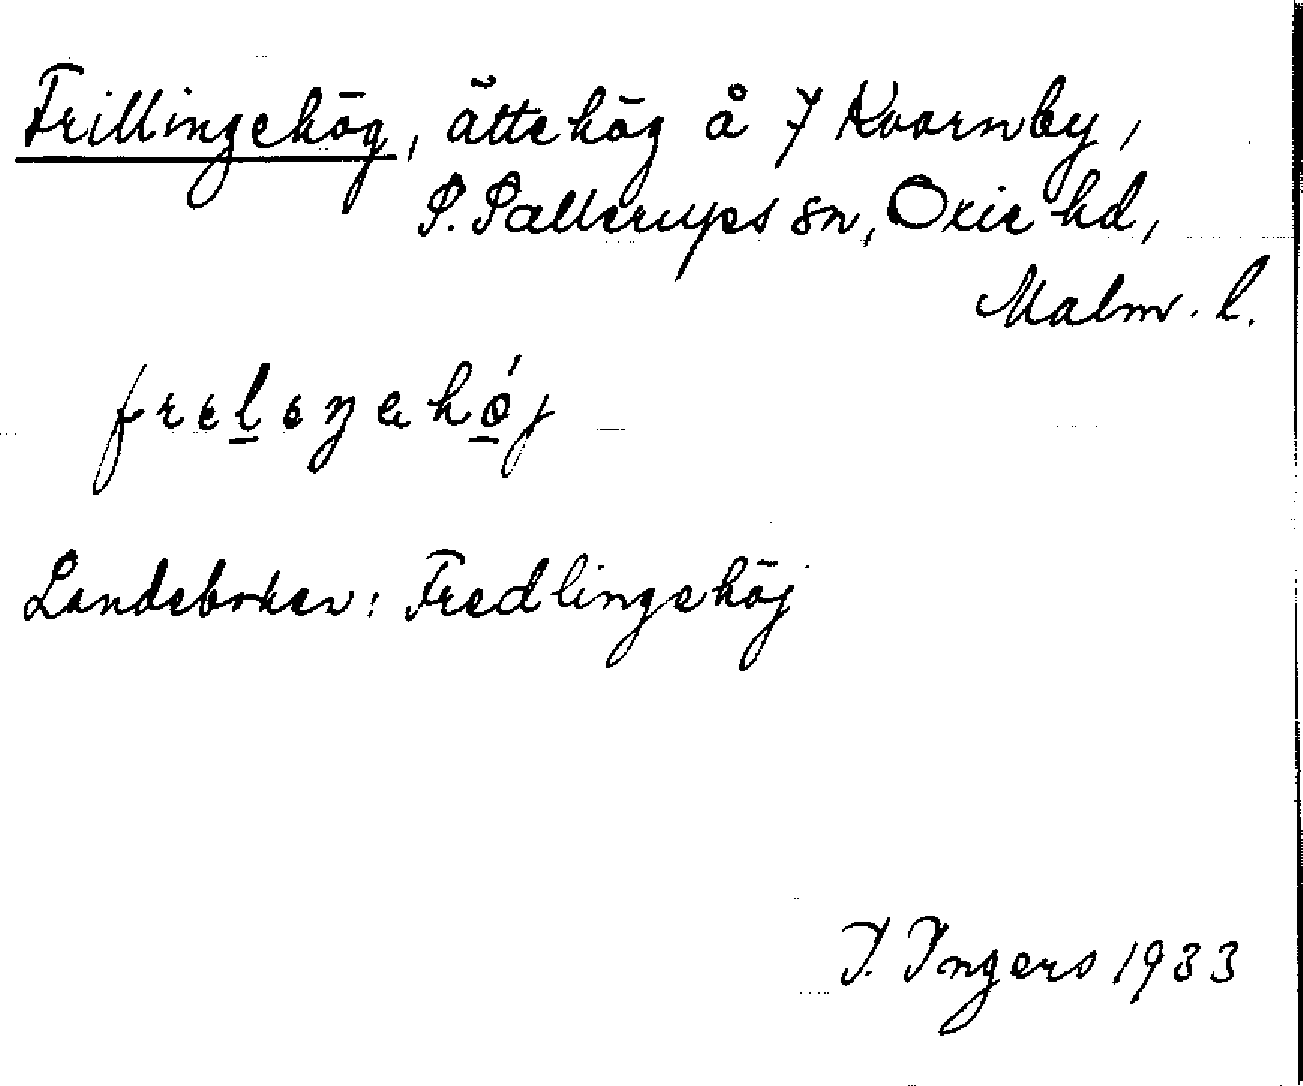 Frillingehög, ättehög å 7 Kvarnby,
S. Sallerups sn, Oxie hd,
Malm. l.
freleŋahǿj
Landeboken: Fredlingehöj
I. Ingers 1933